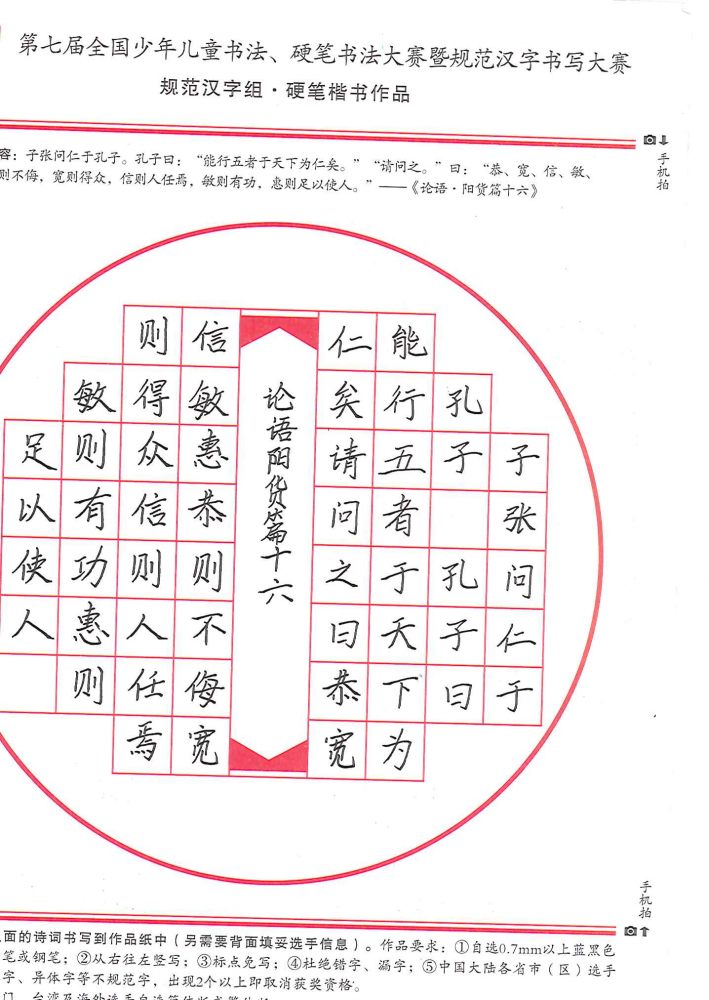 第七届全国少年儿童书法、硬笔书法大赛暨规范汉字书写大赛
规范汉字组·硬笔楷书作品
手机拍
容：子张问仁于孔子。孔子曰：“能行五者于天下为仁矣。”“请问之。”曰：“恭、宽、信、敏、
则不侮，宽则得众，信则人任焉，敏则有功，惠则足以使人。”——《论语·阳货篇十六》
子张问仁于
孔子 孔子曰
能行五者于天下为
仁矣请问之曰恭宽
论语阳货篇十六
信敏惠恭则不侮宽
则得众信则人任焉
敏则有功惠则
足以使人
手机拍
面的诗词书写到作品纸中（另需要背面填妥选手信息）。作品要求：①自选0.7mm以上蓝黑色
笔或钢笔；②从右往左竖写；③标点免写；④杜绝错字、漏字；⑤中国大陆各省市（区）选手
字、异体字等不规范字，出现2个以上即取消获奖资格。